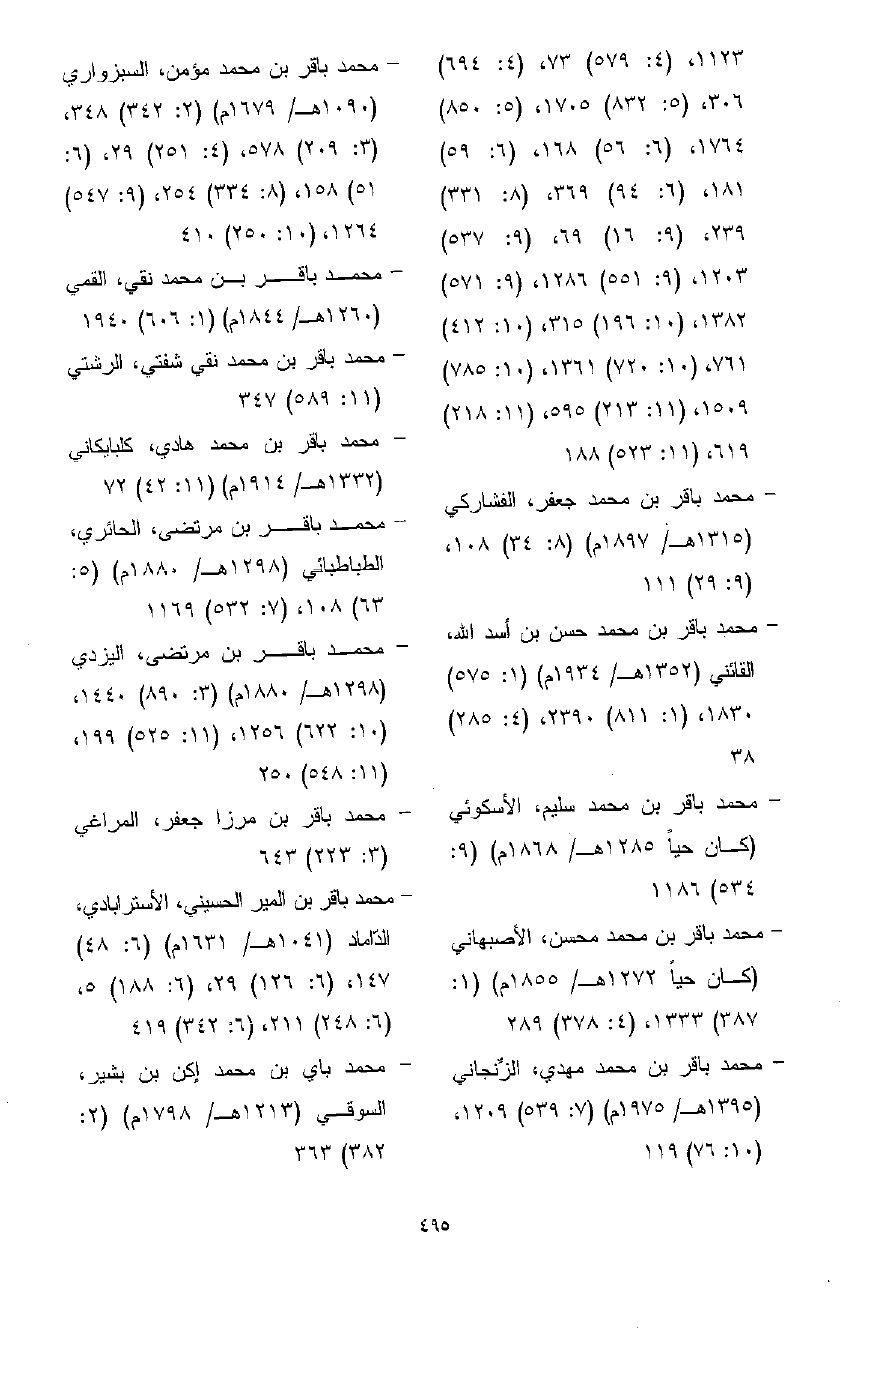 ١١٢٣، (٤: ٥٧٩) ٧٣، (٤: ٦٩٤)
٣٠٦، (٥: ٨٣٢) ١٧٠٥، (٥: ٨٥٠)
١٧٦٤، (٦: ٥٦) ١٦٨، (٦: ٥٩)
١٨١، (٦: ٩٤) ٣٦٩، (٨: ٣٣١)
٢٣٩، (٩: ١٦) ٦٩، (٩: ٥٣٧)
١٢٠٣، (٩: ٥٥١) ١٢٨٦، (٩: ٥٧١)
١٣٨٢، (١٠: ١٩٦) ٣١٥، (١٠: ٤١٢)
٧٦١، (١٠: ٧٢٠) ١٣٦١، (١٠: ٧٨٥)
١٥٠٩، (١١: ٢١٣) ٥٩٥، (١١: ٢١٨)
٦١٩، (١١: ٥٢٣) ١٨٨
- محمد باقر بن محمد جعفر، الفشاركي
(١٣١٥هـ/ ١٨٩٧م) (٨: ٣٤) ١٠٨،
(٩: ٢٩) ١١١
- محمد باقر بن محمد حسن بن أسد الله،
القائني (١٣٥٢هـ/ ١٩٣٤م) (١: ٥٧٥)
١٨٣٠، (١: ٨١١) ٢٣٩٠، (٤: ٢٨٥)
٣٨
- محمد باقر بن محمد سليم، الأسكوئي
(كان حياً ١٢٨٥هـ/ ١٨٦٨م) (٩:
٥٣٤) ١١٨٦
- محمد باقر بن محمد محسن، الأصبهاني
(كان حياً ١٢٧٢هـ/ ١٨٥٥م) (١:
٣٨٧) ١٣٣٣، (٤: ٣٧٨) ٢٨٩
- محمد باقر بن محمد مهدي، الزّنجاني
(١٣٩٥هـ/ ١٩٧٥م) (٧: ٥٣٩) ١٢٠٩،
(١٠: ٧٦) ١١٩
- محمد باقر بن محمد مؤمن، السبزواري
(١٠٩٠هـ/ ١٦٧٩م) (٢: ٣٤٢) ٣٤٨،
(٣: ٢٠٩) ٥٧٨، (٤: ٢٥١) ٢٩، (٦:
٥١) ١٥٨، (٨: ٣٣٤) ٢٥٤، (٩: ٥٤٧)
١٢٦٤، (١٠: ٢٥٠) ٤١٠
- محمد باقر بن محمد نقي، القمي
(١٢٦٠هـ/ ١٨٤٤م) (١: ٦٠٦) ١٩٤٠
- محمد باقر بن محمد نقي شفتي، الرشتي
(١١: ٥٨٩) ٣٤٧
- محمد باقر بن محمد هادي، كلبايكاني
(١٣٣٢هـ/ ١٩١٤م) (١١: ٤٢) ٧٢
- محمد باقر بن مرتضى، الحائري،
الطباطبائي (١٢٩٨هـ/ ١٨٨٠م) (٥:
٦٣) ١٠٨، (٧: ٥٣٢) ١١٦٩
- محمد باقر بن مرتضى، اليزدي
(١٢٩٨هـ/ ١٨٨٠م) (٣: ٨٩٠) ١٤٤٠،
(١٠: ٦٢٢) ١٢٥٦، (١١: ٥٢٥) ١٩٩،
(١١: ٥٤٨) ٢٥٠
- محمد باقر بن مرزا جعفر، المراغي
(٣: ٢٢٣) ٦٤٣
- محمد باقر بن المير الحسيني، الأسترابادي،
الدّاماد (١٠٤١هـ/ ١٦٣١م) (٦: ٤٨)
١٤٧، (٦: ١٢٦) ٢٩، (٦: ١٨٨) ٥،
(٦: ٢٤٨) ٢١١، (٦: ٣٤٢) ٤١٩
- محمد باي بن محمد إكن بن بشير،
السوقي (١٢١٣هـ/ ١٧٩٨م) (٢:
٣٨٢) ٣٦٣
٤٩٥